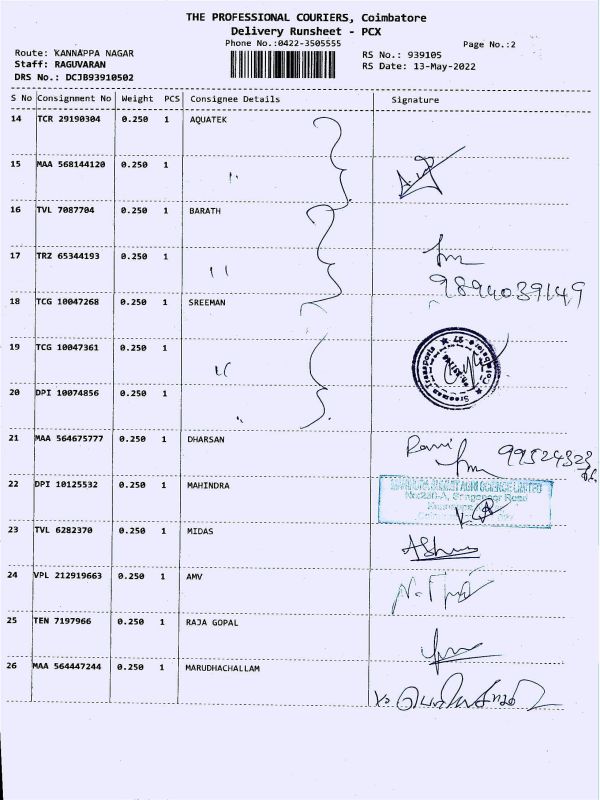 THE PROFESSIONAL COURIERS, Coimbatore
Delivery Runsheet - PCX
Phone No.:0422-3505555
Page No.:2
Route: KANNAPPA NAGAR
Staff: RAGUVARAN
DRS No.: DCJB93910502
RS No.: 939105
RS Date: 13-May-2022
S No Consignment No Weight PCS Consignee Details Signature
14 TCR 29190304 0.250 1 AQUATEK
15 MAA 568144120 0.250 1 "
16 TVL 7087704 0.250 1 BARATH
17 TRZ 65344193 0.250 1 "
9894039149
18 TCG 10047268 0.250 1 SREEMAN
19 TCG 10047361 0.250 1 "
Sreeman Transports Coimbatore
20 DPI 10074856 0.250 1 "
21 MAA 564675777 0.250 1 DHARSAN
22 DPI 10125532 0.250 1 MAHINDRA
23 TVL 6282370 0.250 1 MIDAS
24 VPL 212919663 0.250 1 AMV
25 TEN 7197966 0.250 1 RAJA GOPAL
26 MAA 564447244 0.250 1 MARUDHACHALLAM